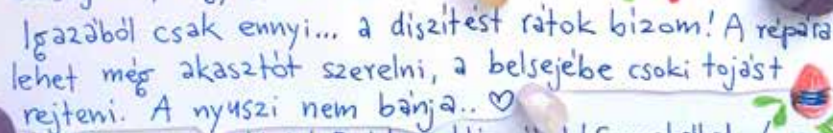 Igazából csak ennyi... a díszítést rátok bízom! A répára
lehet még akasztót szerelni, a belsejébe csoki tojást
rejteni. A nyuszi nem bánja.. ♡